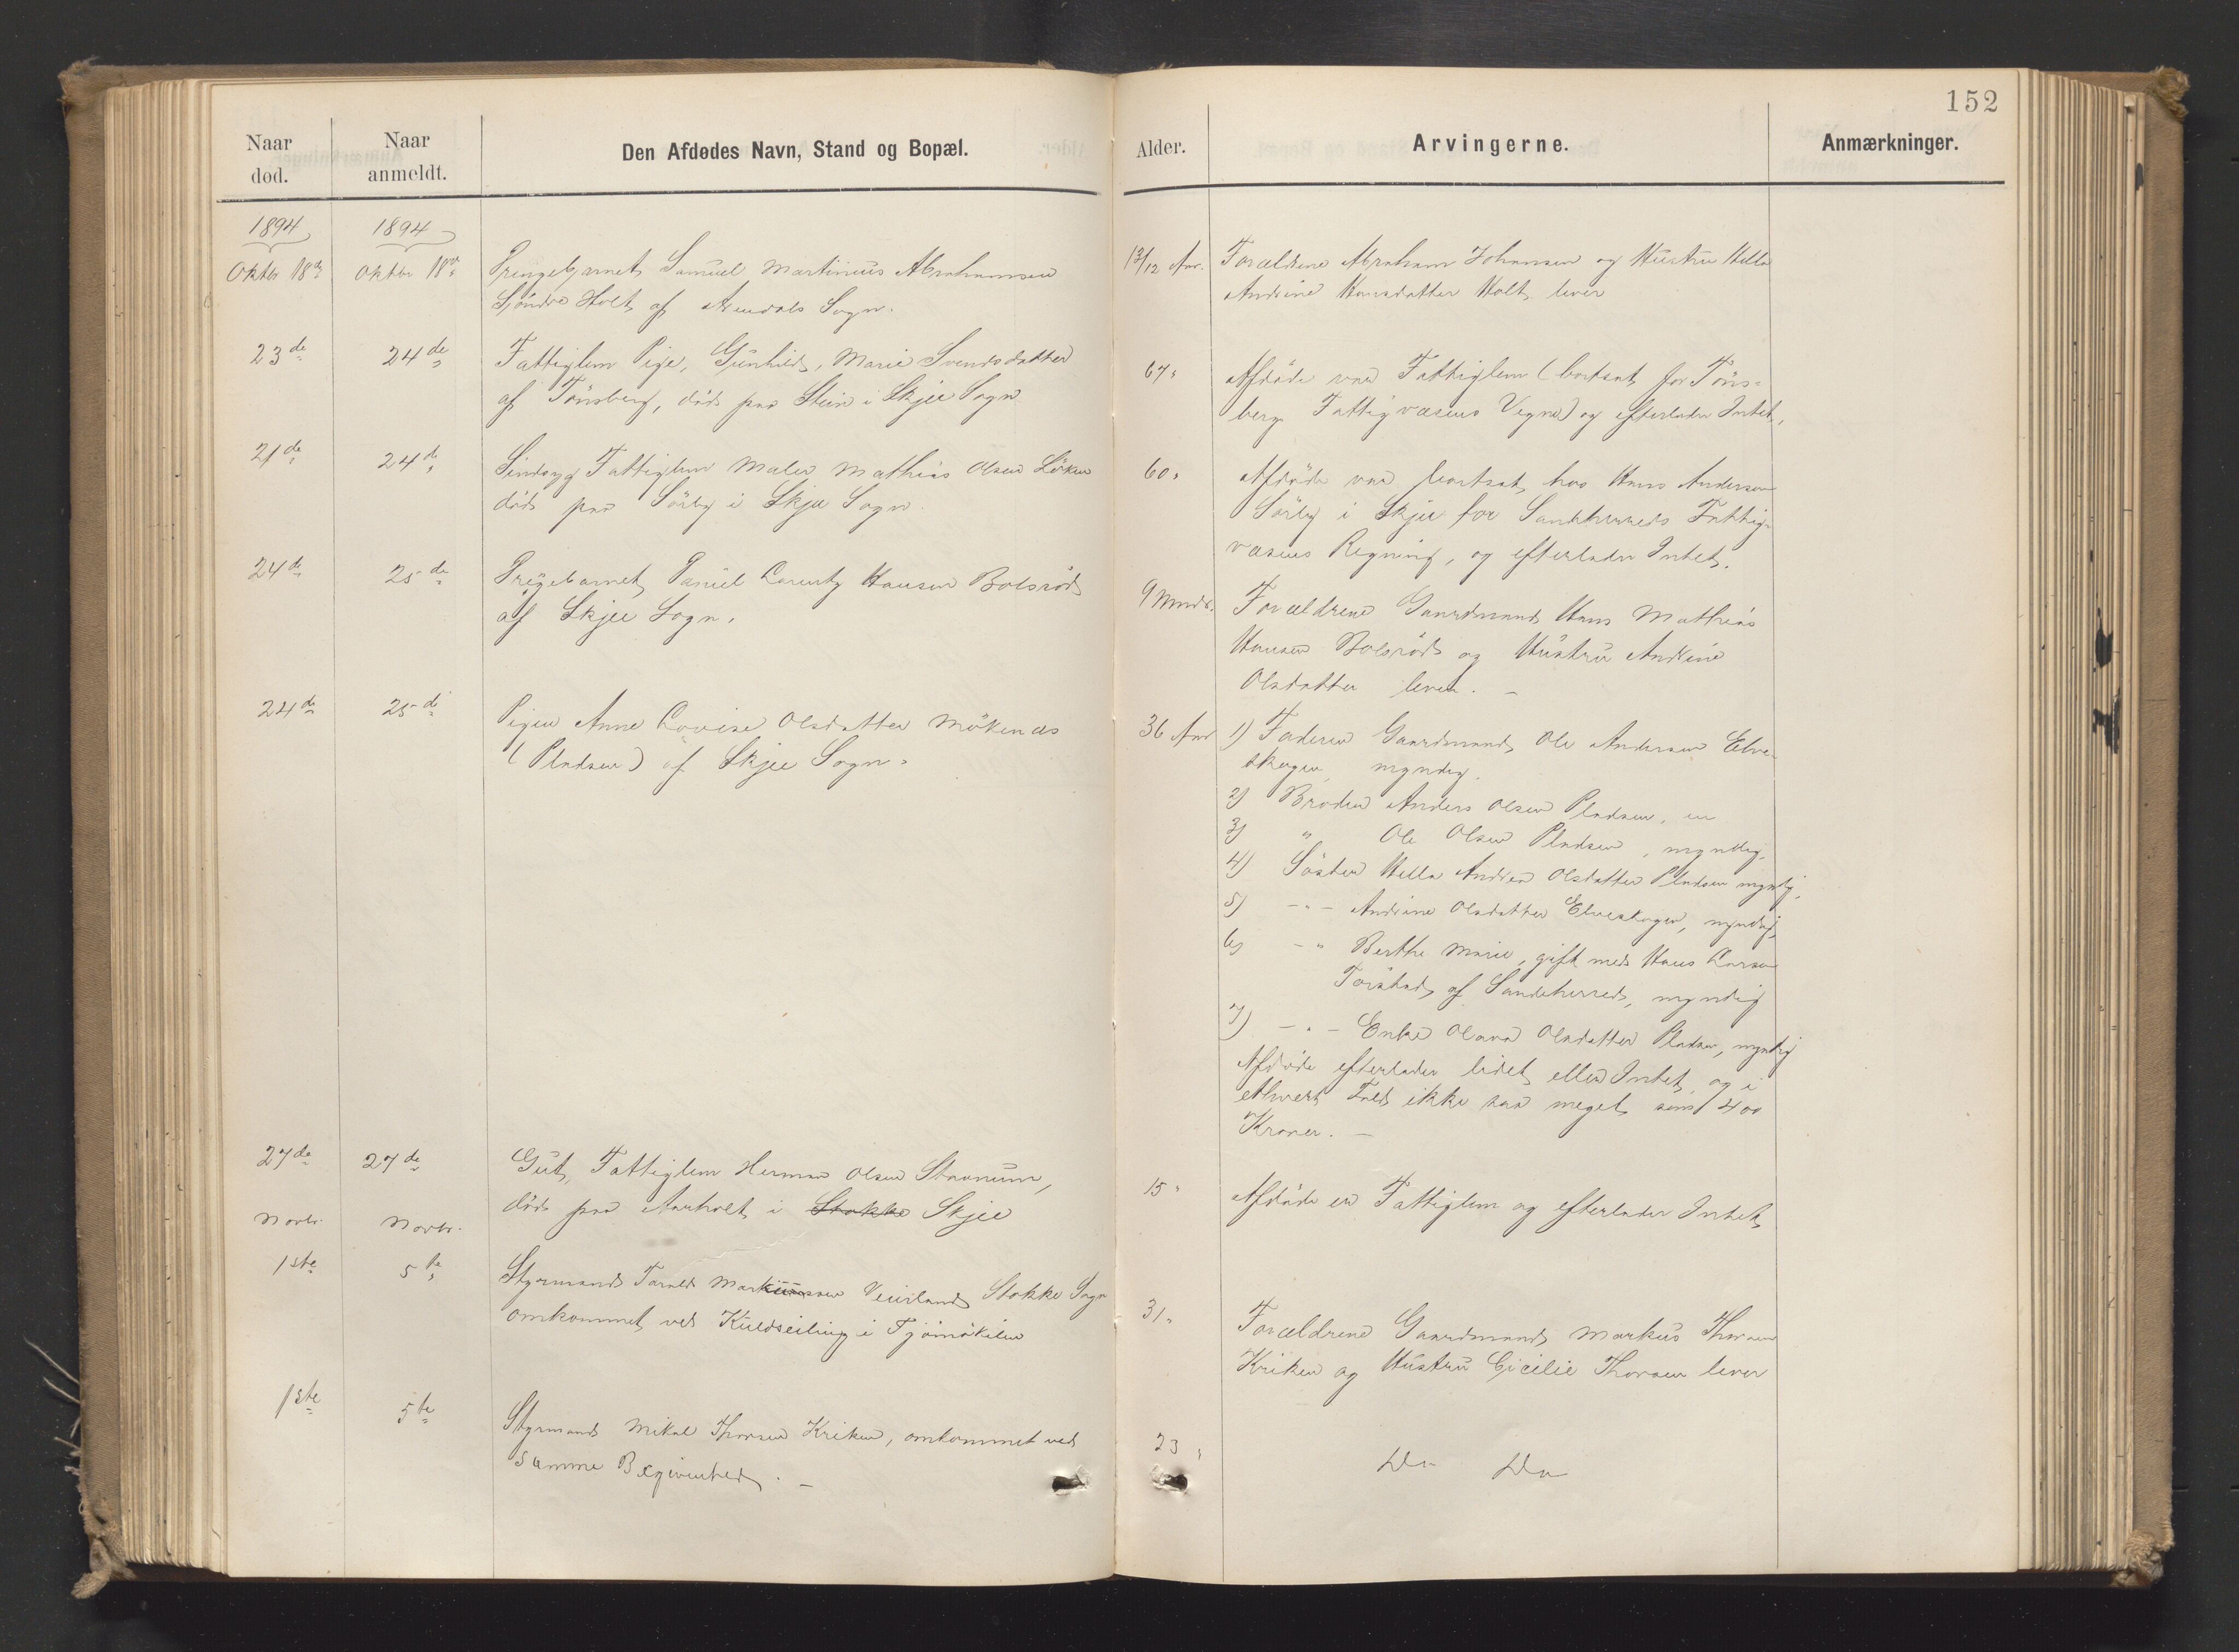 152
Naar død.
Naar anmeldt.
Den Afdødes Navn, Stand og Bopæl.
Alder.
Arvingerne.
Anmærkninger.
1894
1894
Oktbr 18de
Oktbr 18de
Samuel Martinius Abrahamsen
Søndre Holt af Arendals Sogn.
13/12 Aar.
Forældrene Abraham Johansen og Hustru Hella
Andrine Hansdatter Holt lever
23de
24de
Fattiglem Pige, Gunhild Marie Svendsdatter
af Tönsberg, död paa Stein i Skjee Sogn
67 "
Afdöde var Fattiglem (bortsat for Töns-
berg Fattigvæsens Vegne) og efterlader Intet.
21de
24de
Sindsyg Fattiglem Maler Mathias Olsen Löken
död paa Sörby i Skjee Sogn.
60 "
Afdöde var bortsat hos Hans Andersen
Sörby i Skjee for Sandeherreds Fattig-
væsens Regning, og efterlader Intet.
24de
25de
Daniel Lorentz Hansen Bolsröd
af Skjee Sogn.
9 Mndr.
Forældrene Gaardmand Hans Mathias
Hansen Bolsröd og Hustru Andrine
Olsdatter lever. –
24de
25de
Pigen Anne Lovise Olsdatter Mökenæs
(Pladsen) af Skjee Sogn.
36 Aar
1) Faderen Gaardmand Ole Andersen Elve-
skogen myndig.
2) Broder Anders Olsen Pladsen, m
3) " Ole Olsen Pladsen, myndig.
4) Söster Hella Andrea Olsdatter Pladsen myndig.
5) – " – Andrine Olsdatter Elveskogen, myndig.
6) – " Berthe Marie, gift med Hans Larsen
af Sandeherred, myndig
7) – " – Enke Olava Olsdatter Pladsen, myndig
Afdöde efterlader lidet eller Intet, og i
ethvert Fald ikke saa meget som 400
Kroner. –
27de
27de
Gut, Fattiglem Herman Olsen Stavnum,
död paa Aarholt i Stokke Skjee
15 "
Afdöde er Fattiglem og efterlader Intet
Novbr.
Novbr.
1ste
5te
Styrmand Tarald Markussen Veierland Stokke Sogn
omkommet ved Kuldseiling i Tjömökilen
31 "
Forældrene Gaardmand Markus Thorsen
Kriken og Hustru Cicilie Thorsen lever
1ste
5te
Styrmand Mikal Thorsen Kriken, omkommet ved
Samme Begivenhed. –
23 "
Do Do